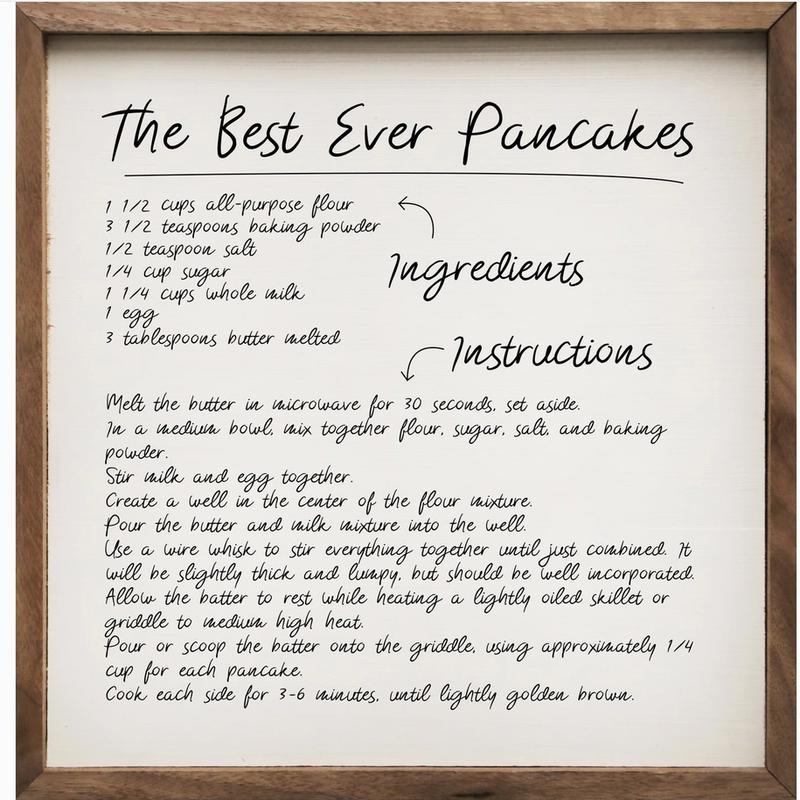 The Best Ever Pancakes
1 1/2 cups all-purpose flour
3 1/2 teaspoons baking powder
1/2 teaspoon salt
1/4 cup sugar
1 1/4 cups whole milk
1 egg
3 tablespoons butter melted
Ingredients
Instructions
Melt the butter in microwave for 30 seconds, set aside.
In a medium bowl, mix together flour, sugar, salt, and baking
powder.
Stir milk and egg together.
Create a well in the center of the flour mixture.
Pour the butter and milk mixture into the well.
Use a wire whisk to stir everything together until just combined. It
will be slightly thick and lumpy, but should be well incorporated.
Allow the batter to rest while heating a lightly oiled skillet or
griddle to medium high heat.
Pour or scoop the batter onto the griddle, using approximately 1/4
cup for each pancake.
Cook each side for 3-6 minutes, until lightly golden brown.